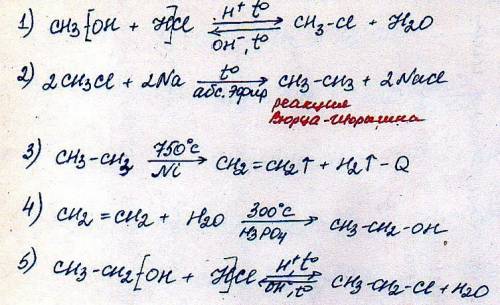 1) CH3[OH + H]Cl ⇄ (H⁺, t° / OH⁻, t°) CH3-Cl + H2O
2) 2CH3Cl + 2Na → (t° / абс. эфир) CH3-CH3 + 2NaCl
реакция
Вюрца-Шорыгина
3) CH3-CH3 → (750°C / Ni) CH2=CH2↑ + H2↑ - Q
4) CH2=CH2 + H2O → (300°C / H3PO4) CH3-CH2-OH
5) CH3-CH2[OH + H]Cl ⇄ (H⁺, t° / OH⁻, t°) CH3-CH2-Cl + H2O